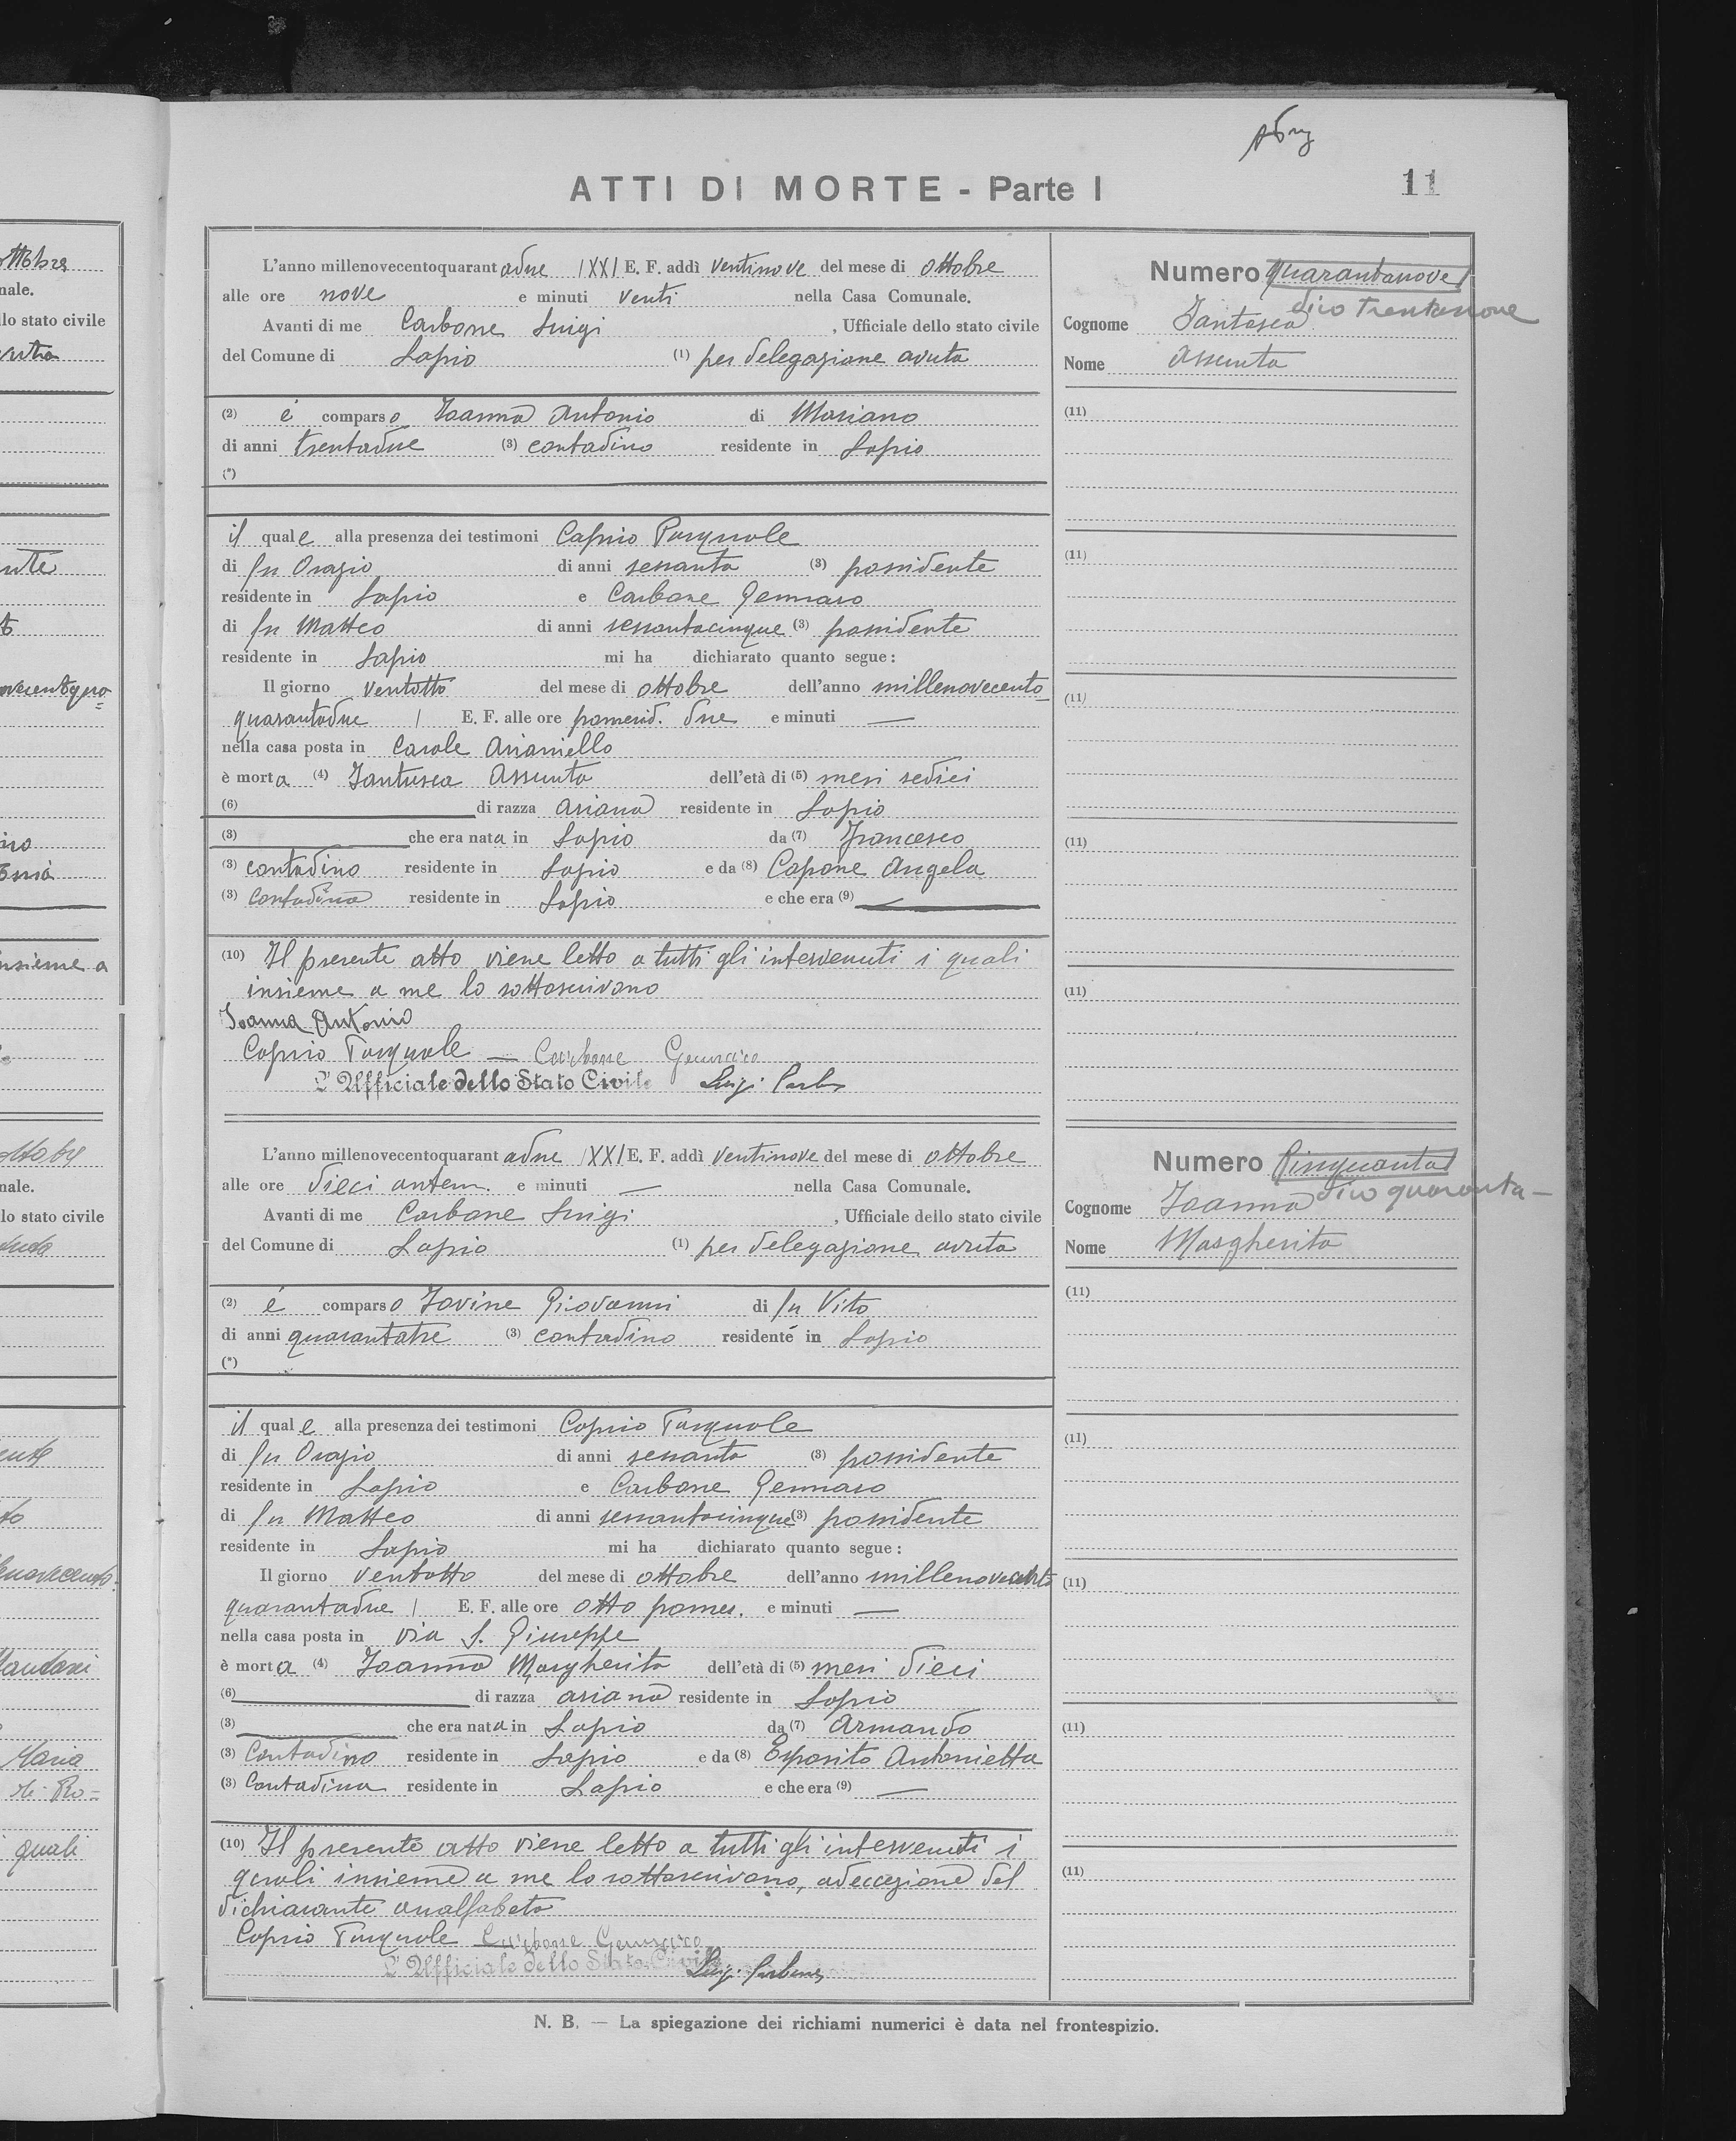 ATTI DI MORTE - Parte I
11
L'anno millenovecentoquarantadue /XXI E. F. addì ventinove del mese di ottobre
alle ore nove e minuti venti nella Casa Comunale.
Avanti di me Carbone Luigi , Ufficiale dello stato civile
del Comune di Lapio (1) per delegazione avuta
(2) è comparso Joanna Antonio di Mariano
di anni trentadue (3) contadino residente in Lapio
(*)
il quale alla presenza dei testimoni Caprio Pasquale
di fu Orazio di anni sessanta (3) possidente
residente in Lapio e Carbone Gennaro
di fu Matteo di anni sessantacinque (3) possidente
residente in Lapio mi ha dichiarato quanto segue:
Il giorno ventotto del mese di ottobre dell'anno millenovecento
quarantadue / E. F. alle ore pomerid. due e minuti —
nella casa posta in Casale Arianiello
è morta (4) Iantosca Assunta dell'età di (5) mesi sedici
(6) di razza ariana residente in Lapio
(3) che era nata in Lapio da (7) Francesco
(3) contadino residente in Lapio e da (8) Capone Angela
(3) contadina residente in Lapio e che era (9) —
(10) Il presente atto viene letto a tutti gli intervenuti i quali
insieme a me lo sottoscrivono
Joanna Antonio
Caprio Pasquale — Carbone Gennaro
L'Ufficiale dello Stato Civile Luigi Carbone
Numero quarantanove
dico trentanove
Cognome Iantosca
Nome Assunta
(11)
(11)
(11)
(11)
(11)
L'anno millenovecentoquarantadue /XXI E. F. addì ventinove del mese di ottobre
alle ore dieci antem. e minuti — nella Casa Comunale.
Avanti di me Carbone Luigi , Ufficiale dello stato civile
del Comune di Lapio (1) per delegazione avuta
(2) è comparso Iovine Giovanni di fu Vito
di anni quarantatre (3) contadino residente in Lapio
(*)
il quale alla presenza dei testimoni Caprio Pasquale
di fu Orazio di anni sessanta (3) possidente
residente in Lapio e Carbone Gennaro
di fu Matteo di anni sessantacinque (3) possidente
residente in Lapio mi ha dichiarato quanto segue:
Il giorno ventotto del mese di ottobre dell'anno millenovecento
quarantadue / E. F. alle ore otto pomer. e minuti —
nella casa posta in via S. Giuseppe
è morta (4) Joanna Margherita dell'età di (5) mesi dieci
(6) di razza ariana residente in Lapio
(3) che era nata in Lapio da (7) Armando
(3) Contadino residente in Lapio e da (8) Esposito Antonietta
(3) Contadina residente in Lapio e che era (9) —
(10) Il presente atto viene letto a tutti gli intervenuti i
quali insieme a me lo sottoscrivono, ad eccezione del
dichiarante analfabeta
Caprio Pasquale Carbone Gennaro
L'Ufficiale dello Stato Civile Luigi Carbone
Numero Cinquanta
dico quaranta —
Cognome Joanna
Nome Margherita
(11)
(11)
(11)
(11)
(11)
N. B. — La spiegazione dei richiami numerici è data nel frontespizio.